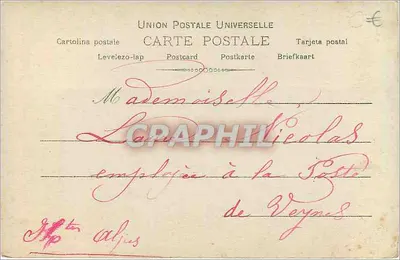 UNION POSTALE UNIVERSELLE
Cartolina postale CARTE POSTALE Tarjeta postal
Levelezo-lap Postcard Postkarte Briefkaart
Mademoiselle
Nicolas
CRAPHIL
employée à la Poste
de Veynes
Htes Alpes
€